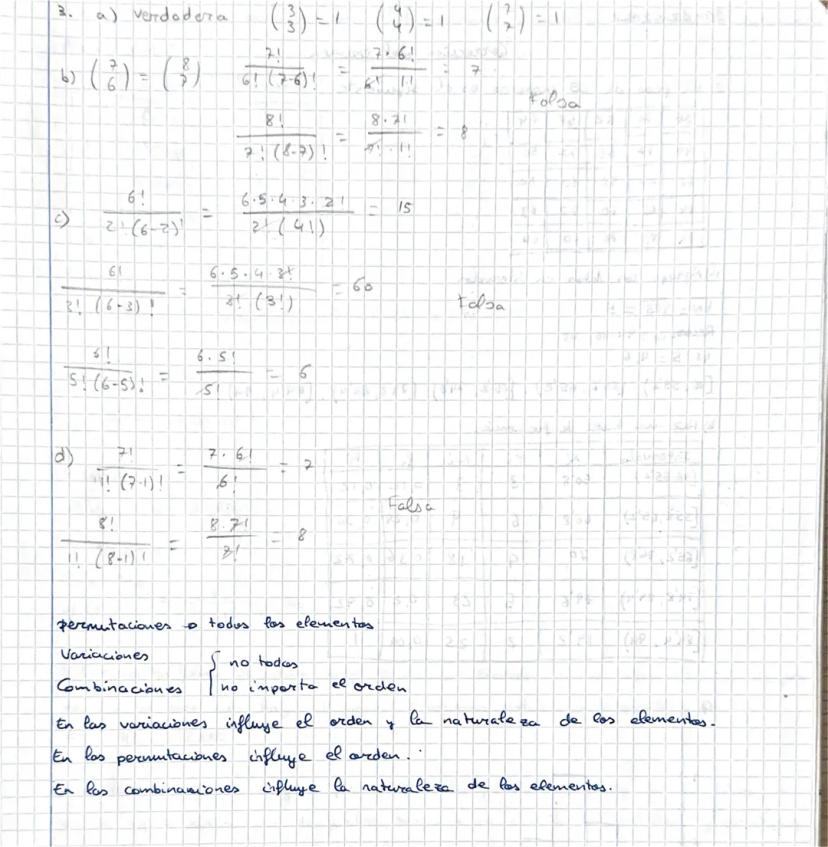 3. a) verdadera (3 3) = 1 (4 4) = 1 (7 7) = 1
b) (7 6) = (8 7) 7! / 6! (7-6)! = 7·6! / 6! 1! = 7
Falsa
8! / 7! (8-7)! = 8·7! / 7! · 1! = 8
c) 6! / 2! (6-2)! = 6·5·4·3·2! / 2! (4!) = 15
6! / 3! (6-3)! = 6·5·4·3! / 3! (3!) = 60
Falsa
6! / 5! (6-5)! = 6·5! / 5! = 6
d) 7! / 1! (7-1)! = 7·6! / 6! = 7
Falsa
8! / 1! (8-1)! = 8·7! / 7! = 8
permutaciones → todos los elementos
Variaciones { no todos
Combinaciones { no importa el orden
En las variaciones influye el orden y la naturaleza de los elementos.
En las permutaciones influye el orden.
En las combinaciones influye la naturaleza de los elementos.